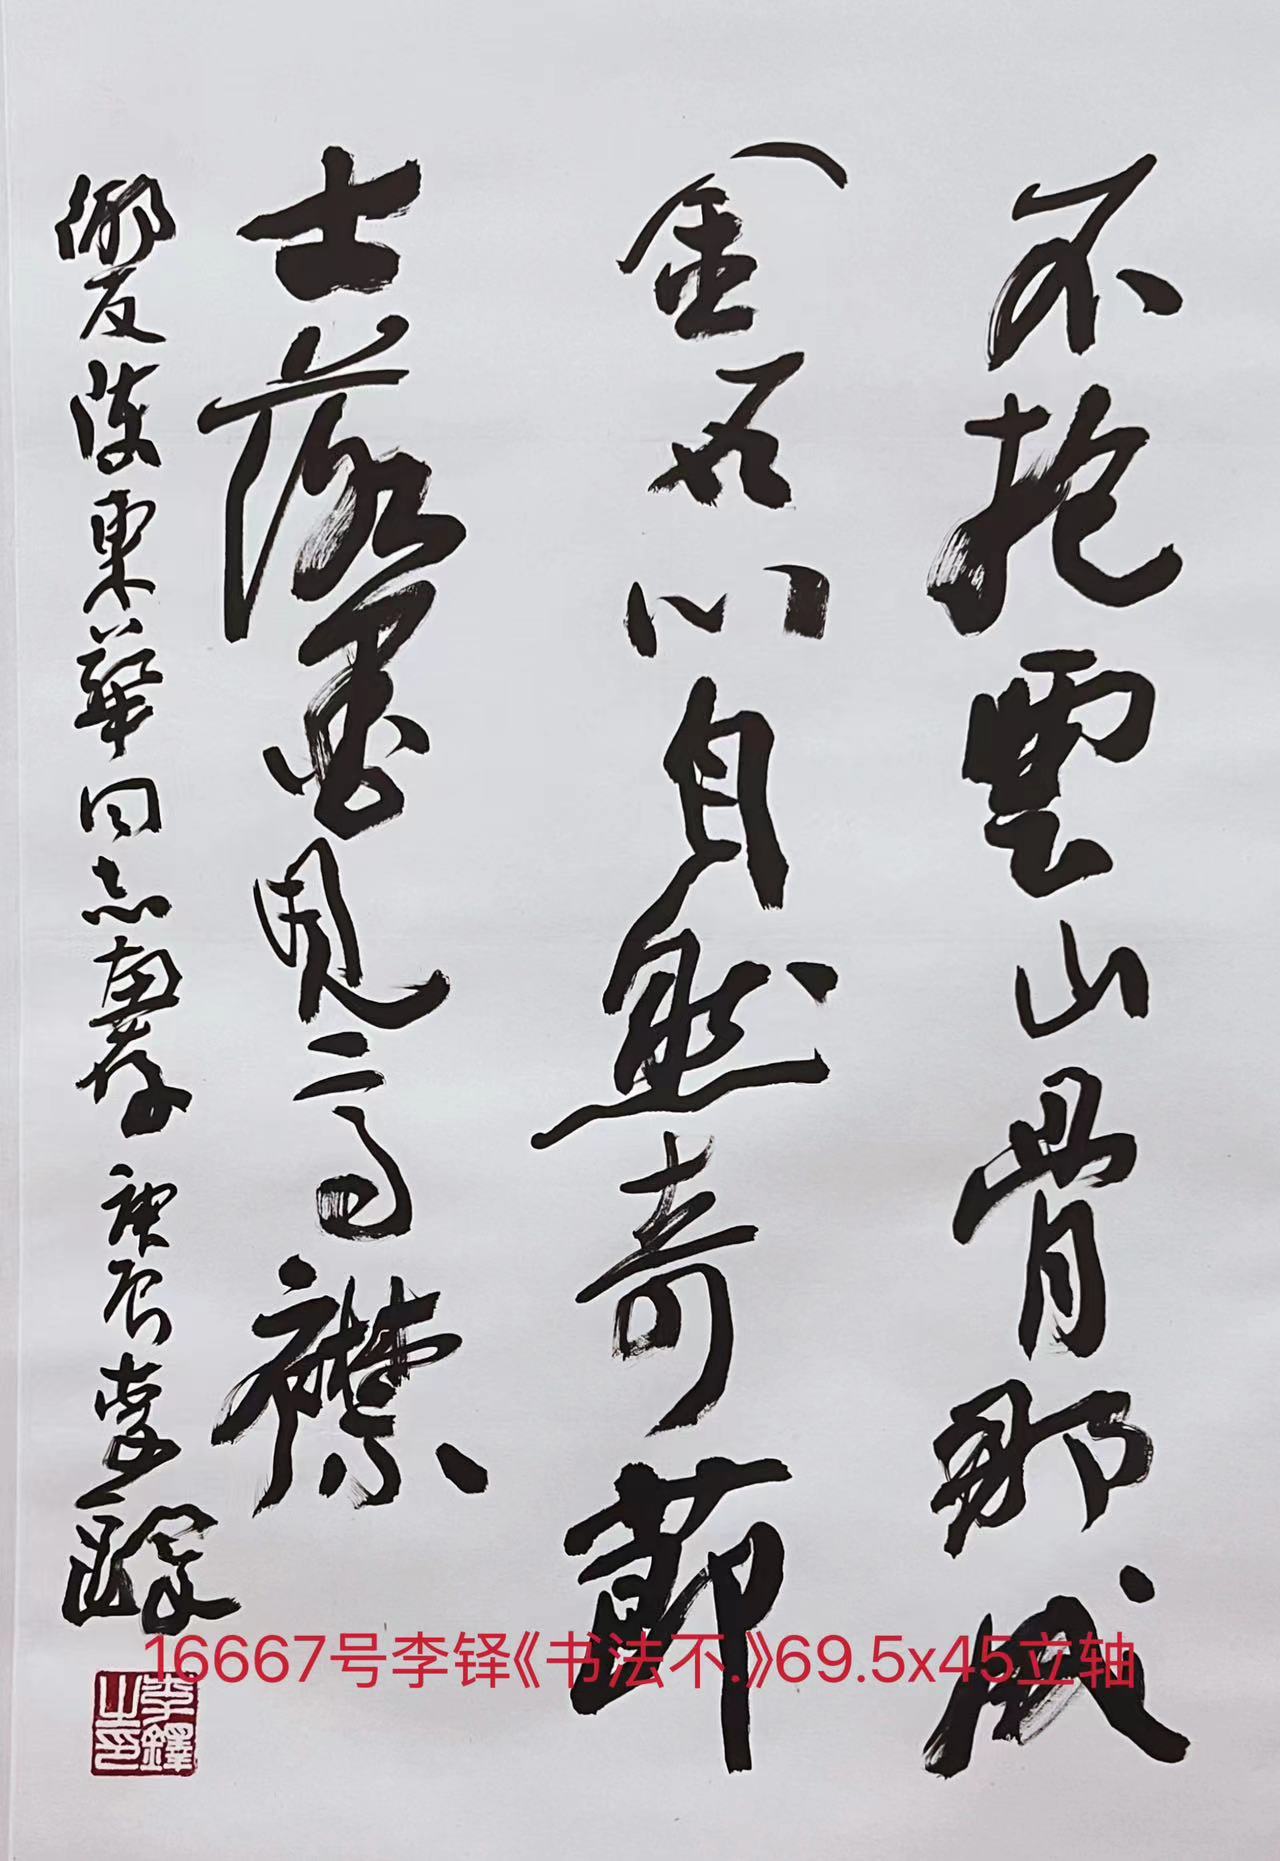 不抱雲山骨那成
金石心自然奇節
士落墨見高襟
鄉友陳東華同志留存 庚辰 李鐸
李鐸之印
16667号李铎《书法不.》69.5x45立轴